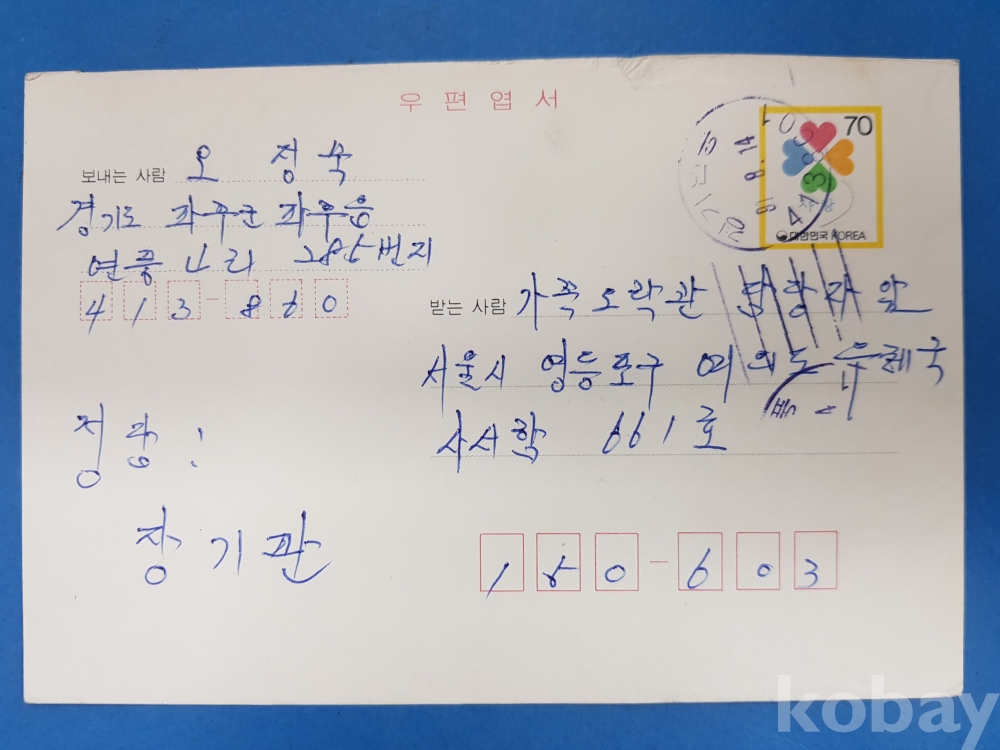 우편엽서
70
대한민국 KOREA
91. 8. 14
보내는 사람 오 정숙
경기도 파주군 파주읍
연풍 2리 번지
413-860
받는 사람 가족오락관 담당자 앞
서울시 영등포구 여의도 우체국
사서함 661호
정답:
장기판
150-603
kobay